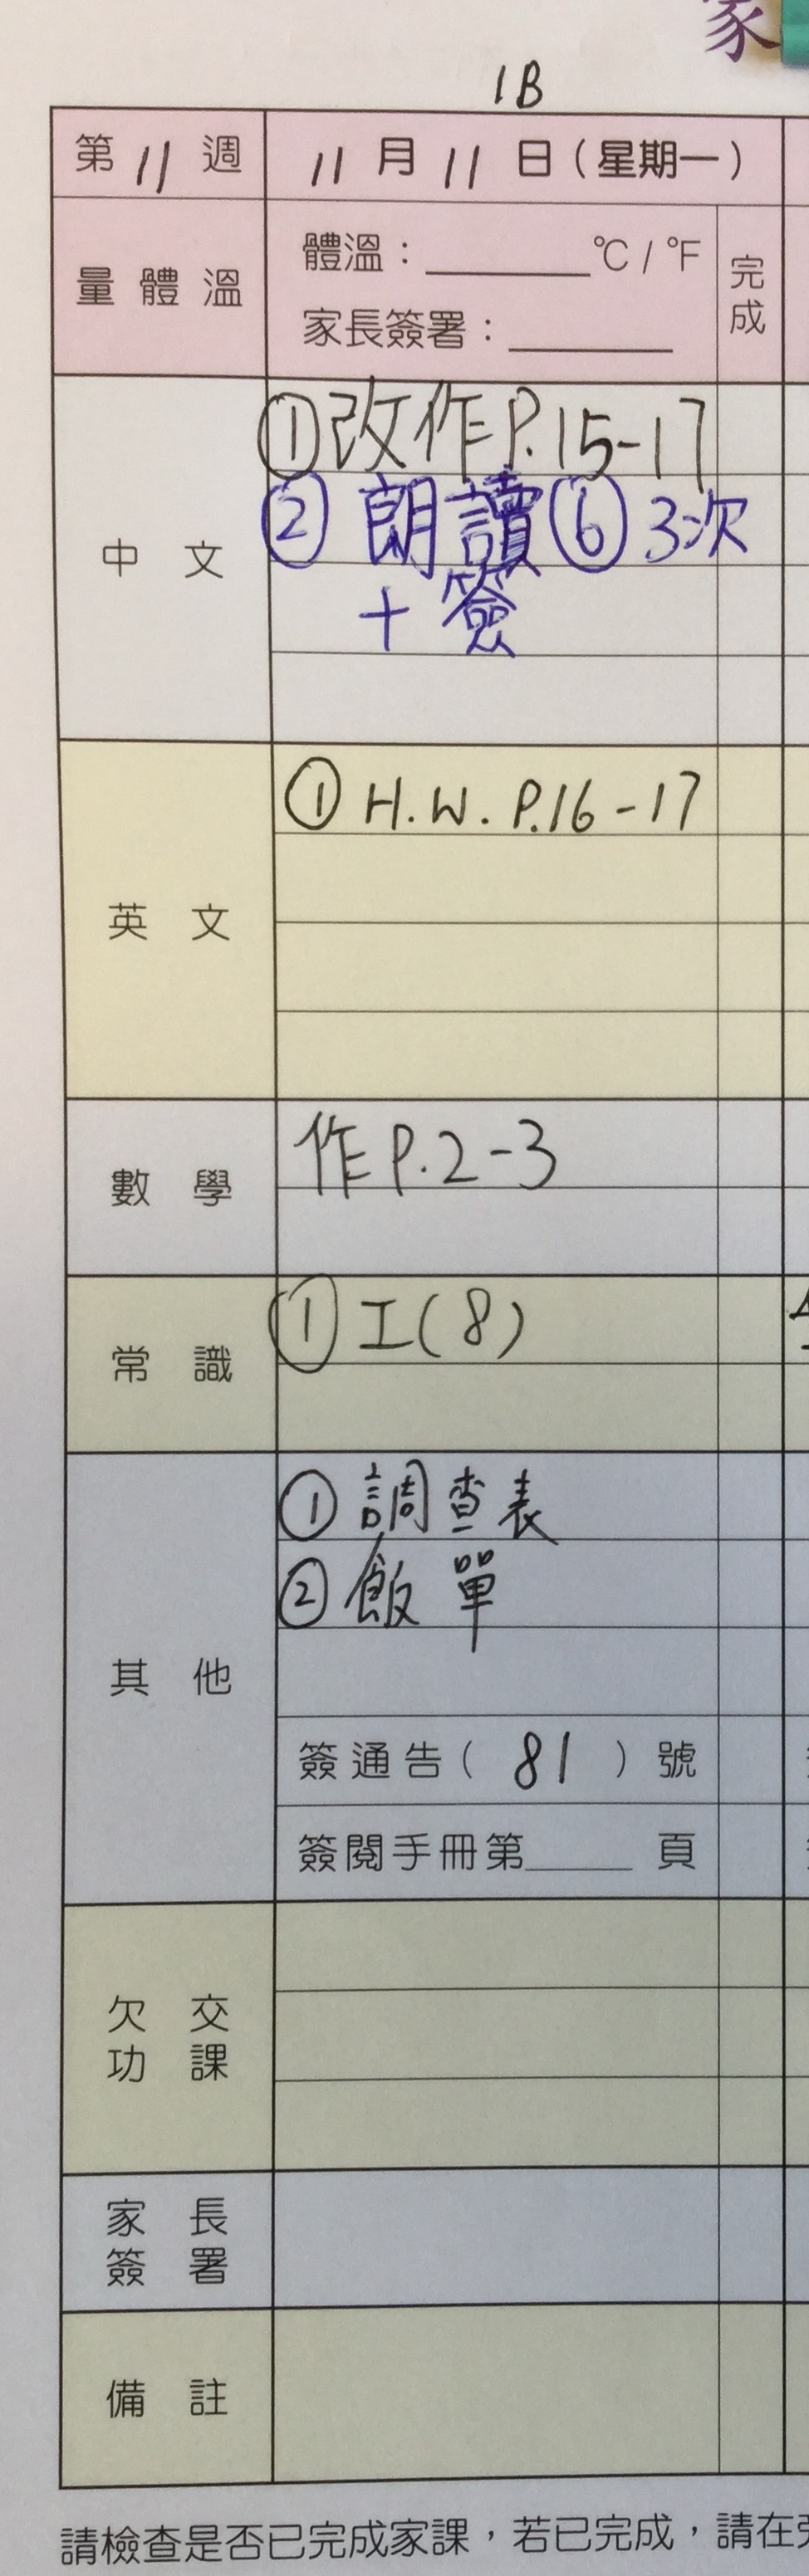 家
1B
第 11 週
11 月 11 日（星期一）
量體溫
體溫：______°C / °F
家長簽署：______
完成
中文
①改作P.15-17
② 朗讀⑥ 3次
+ 簽
英文
① H.W. P.16-17
數學
作P.2-3
常識
① 工(8)
其他
① 調查表
② 飯單
簽通告（ 81 ）號
簽閱手冊第____ 頁
欠交
功課
家長
簽署
備註
請檢查是否已完成家課，若已完成，請在